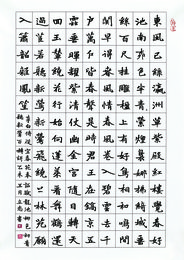 東風已綠瀛洲草紫殿紅樓覺春好
池南柳色半青青縈煙裊娜拂綺城垂
絲百尺掛雕楹上有好鳥相和鳴間
關早得春風情春風卷入碧雲去千
門萬戶皆春聲是時君王在鎬京五
雲垂暉耀紫清仗出金宮隨日轉天
回玉輦繞花行始向蓬萊看舞鶴還
過茝若聽新鶯新鶯飛繞上林苑願
入簫韶雜鳳笙
李白侍從宜春苑奉詔賦龍池柳色初青
聽新鶯百囀歌